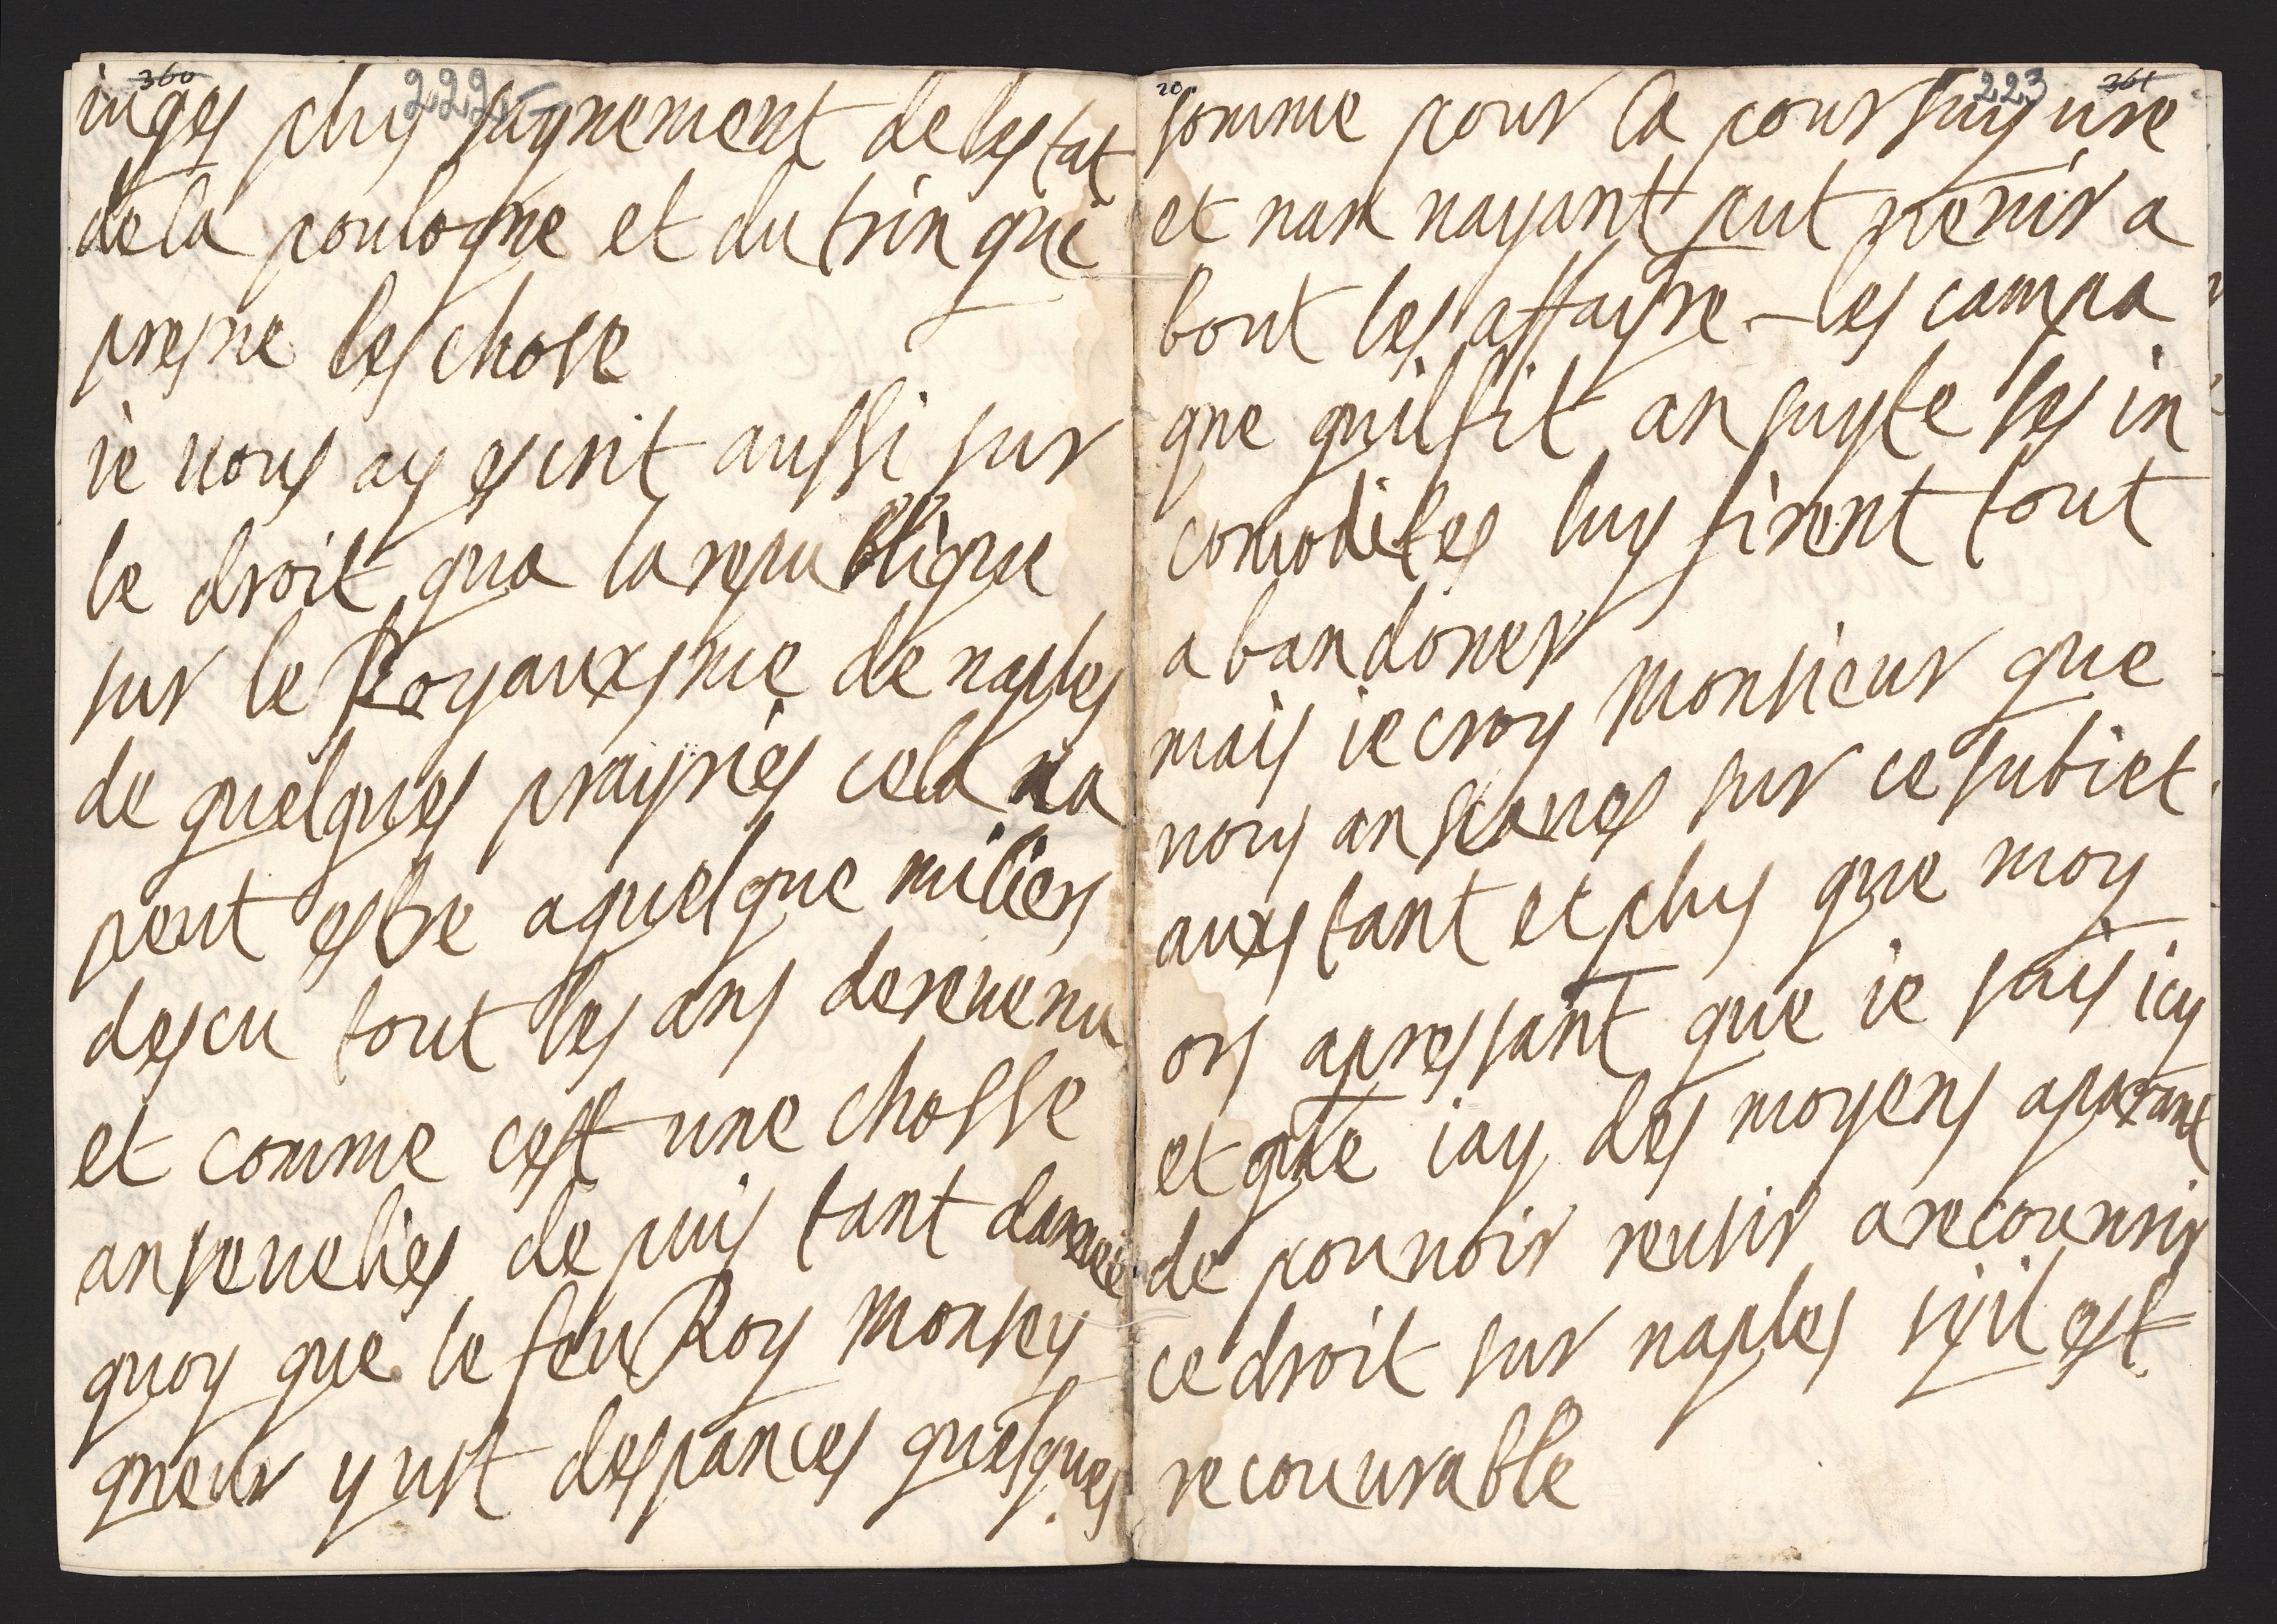 360
222
iuges plus saynement de lestat
dela poulogne et du trin qui
presne les chose
ie vous ay escrit aussi sur
le droit qua la republique
sur le Royauxsme de naples
de quelques prayries cela va
peut estre a quelque miliers
descu tout les ans derevenu
et comme cest une chosse
ansevelies de puis tant dannee
quoy que le feu Roy Monsey
gneur y ust despances quelques
20
223
361
somme pour la poursuyvre
et nan nayant put venir a
bout les affayre – les campa
gne quil fit an suyte ses in
comodites luy firent tout
abandoner
mais ie croy Monsieur que
vous an scaves sur ce subiet
auxstant et plus que moy
ors apressant que ie sais icy
et que iay des moyens aparant
de pouvoir reusir a recouvrir
ce droit sur naples syil est
recouvrable